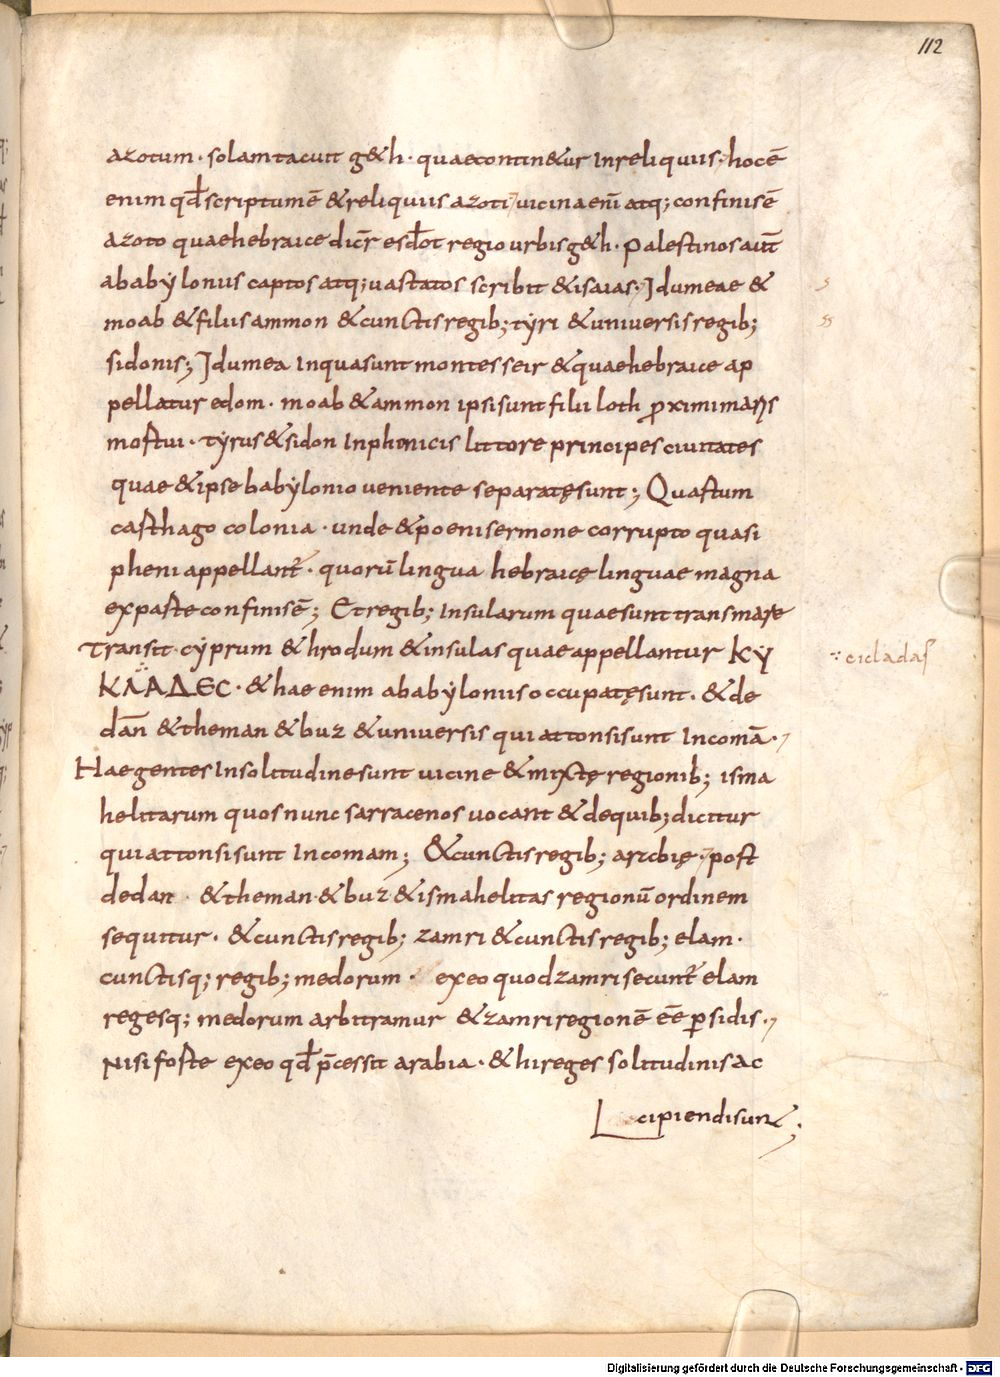 112
azotum · solam tacuit g&h · quae contin&ur In reliquiis · hoc ē
enim qđ scriptum ē & reliquiis azoti vicina enī atq; confinis ē
azoto quae hebraice dicr̄ esdot regio urbis g&h · Palestinos aut̄
a babylonus captos atq; uastatos scribit & isaias · Idumeae &
moab & filus ammon & cunctis regib; tyri & uniuersis regib;
sidonis; Idumea Inqua sunt montes seir & quae hebraice ap
pellatur edom · moab & ammon ipsi sunt filii loth proximi maris
mortui · tyrus & sidon In phinicis littore principes ciuitates
quae & ipse babylonio ueniente separatę sunt; Quartum
carthago colonia · unde & poeni sermone corrupto quasi
pheni appellant̄ · quorū lingua hebraicę linguae magna
ex parte confinis ē; Et regib; Insularum quae sunt trans mare
Transit · cyprum & hrodum & insulas quae appellantur ΚΥ
ΚΛΑΔΕC · & hae enim a babylonus occupatę sunt · & de
dān & theman & buz & uniuersis qui attonsi sunt In comā ·
Hae gentes In solitudine sunt uicine & mixtę regionib; isma
helitarum quos nunc sarracenos uocant & de quib; dicitur
qui attonsi sunt In comam; & cunctis regib; arabię · post
dedan · & theman · & buz & ismahelitas regionū ordinem
sequitur · & cunctis regib; zamri & cunctis regib; elam ·
cunctisq; regib; medorum · ex eo quod zamri secunt̄ elam
regesq; medorum arbitramur & zamri regionē eē p̱sidis ·
Nisi forte ex eo qđ p̄cessit arabia · & hi reges solitudinis ac
cipiendi sunt;
cicladas